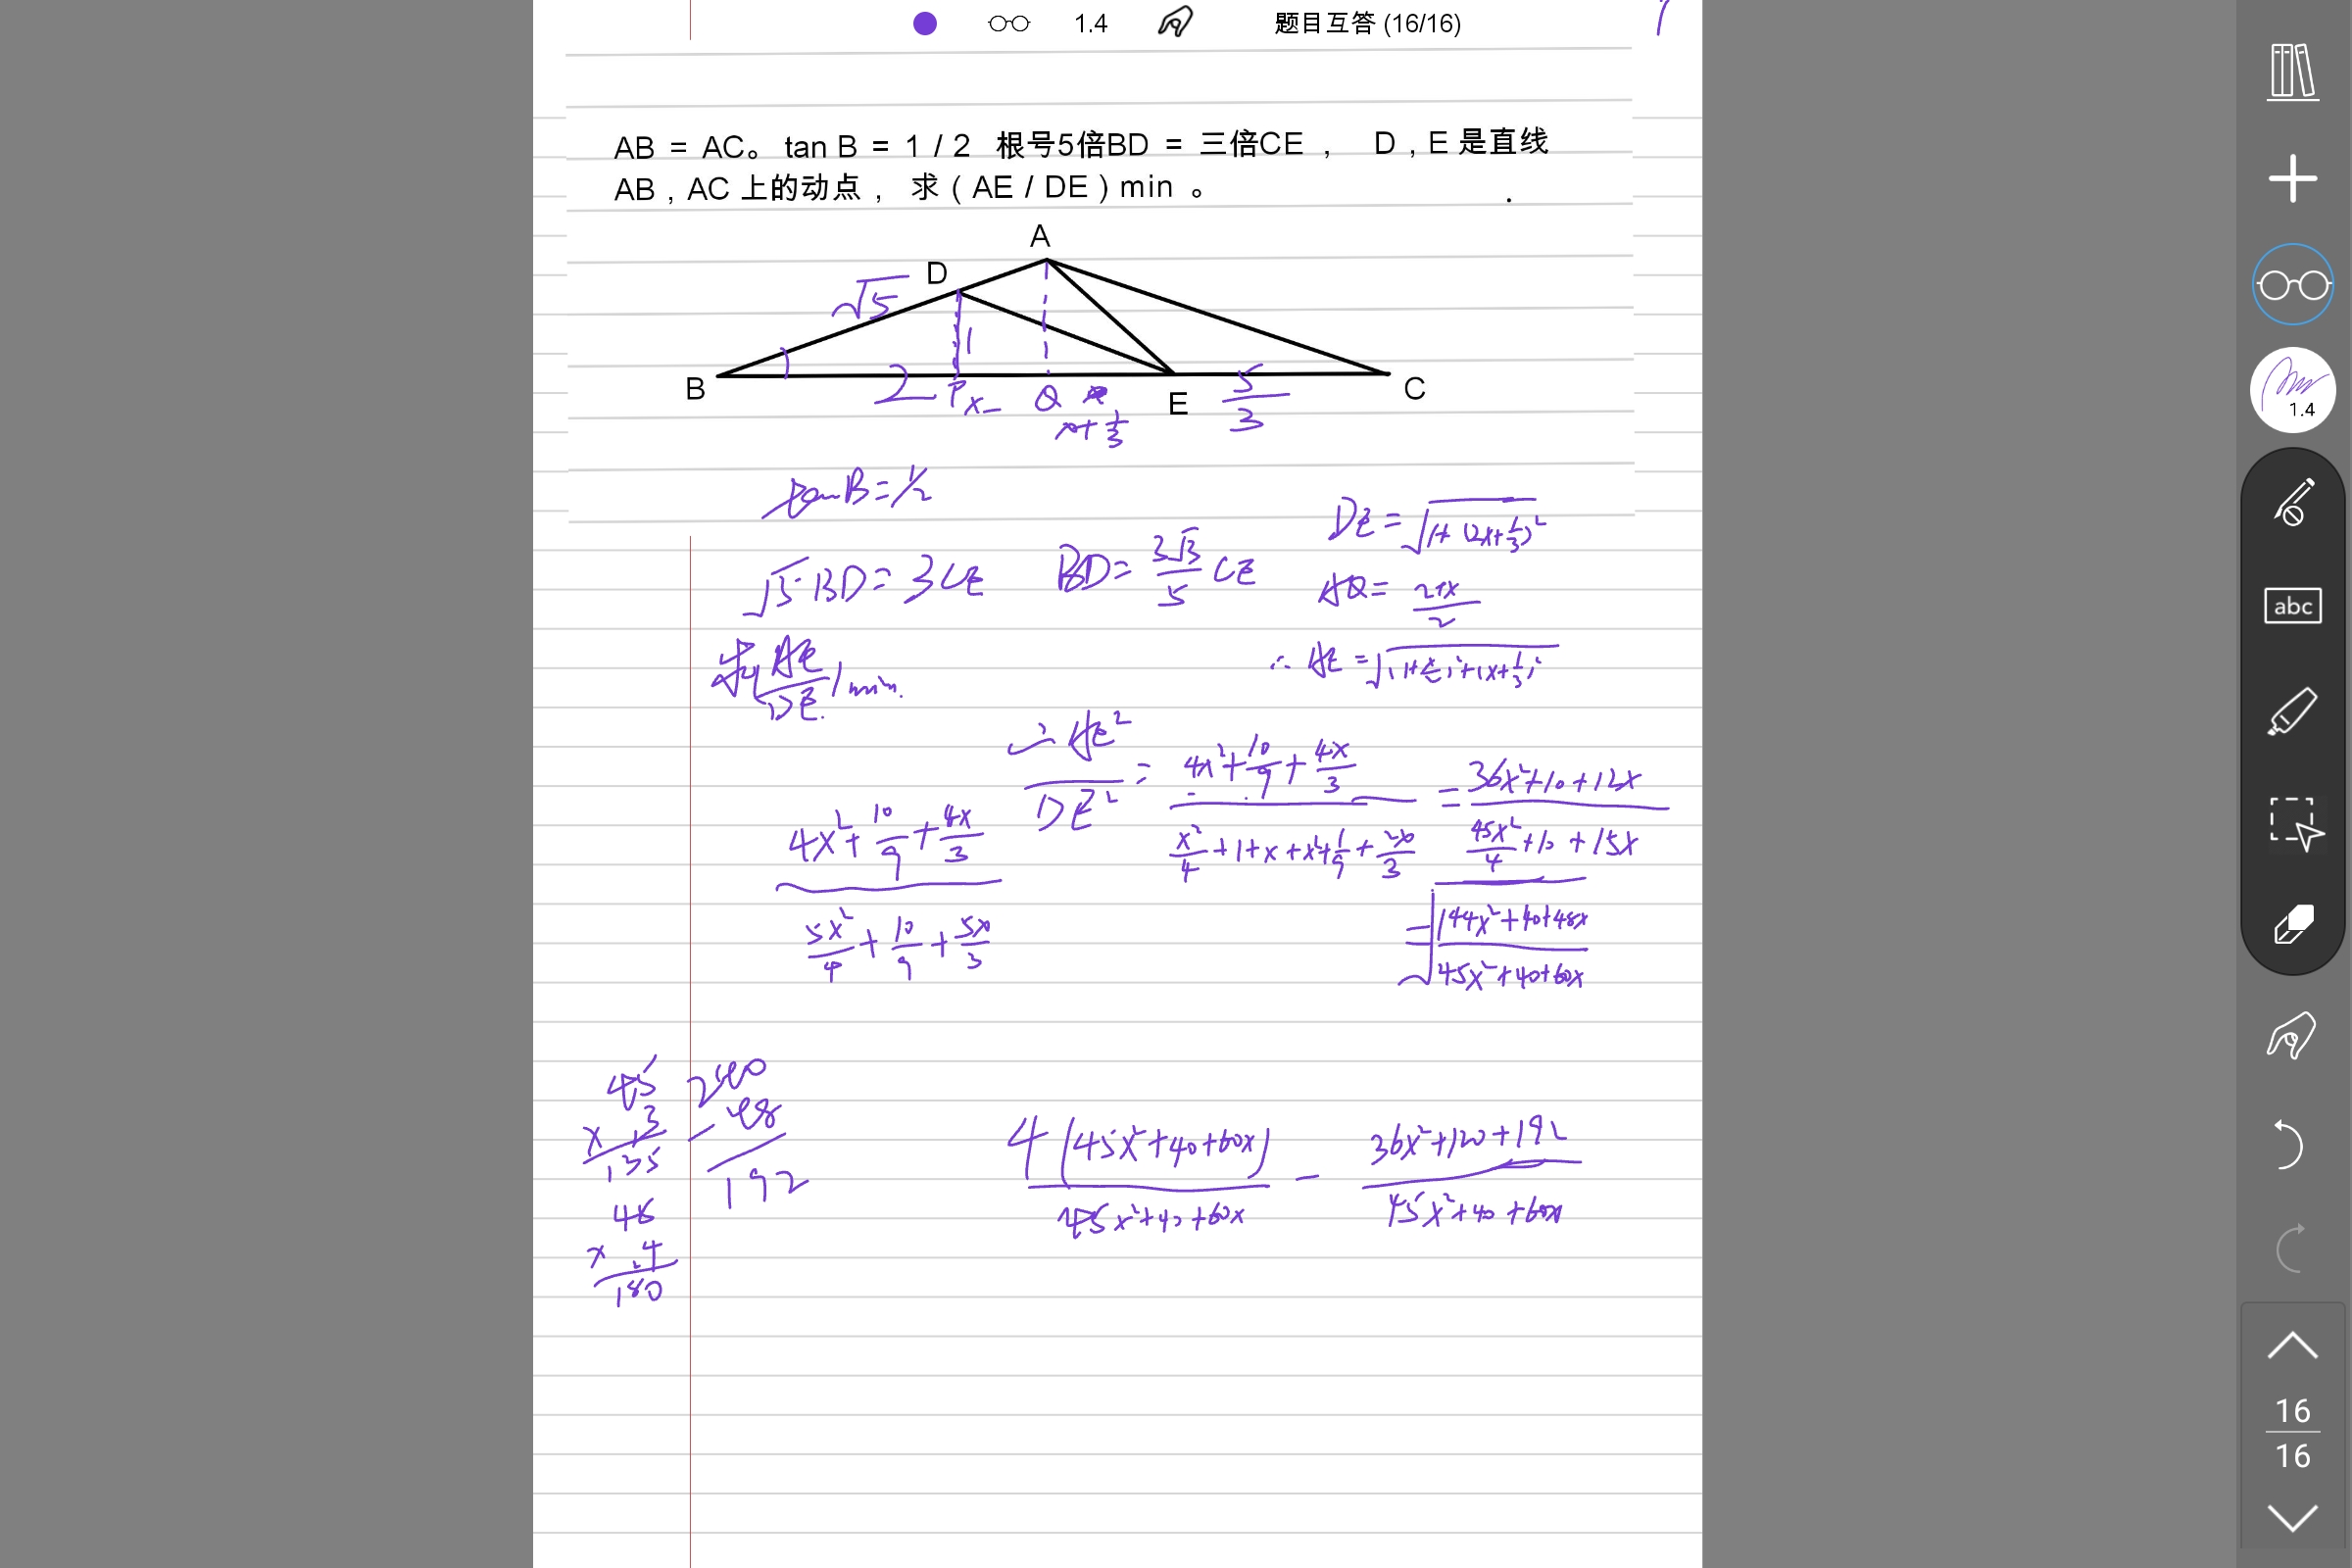 1.4 题目互答 (16/16)
AB = AC。 tan B = 1 / 2 根号5倍BD = 三倍CE , D , E 是直线
AB , AC 上的动点 , 求 ( AE / DE ) min 。
A
D
√5
1
B
2 P x Q E 5/3 C
x+1/3
tanB=1/2
DE=√(1+(2x+1/3)²)
√5 BD=3CE BD=3√3/5 CE
AQ=(2+x)/2
求(AE/DE)min.
∴AE=√((1+x/2)²+(x+1/3)²)
∴AE²/DE² = (4x²+10/9+4x/3)/(x²/4+1+x+x²+1/9+2x/3) = (36x²+10+12x)/(45x²/4+10+15x)
(4x²+10/9+4x/3)/(5x²/4+10/9+5x/3)
=√((144x²+40+48x)/(45x²+40+60x))
45
× 3
135
240
- 48
192
45
× 4
180
4(45x²+40+60x)/(45x²+40+60x) - (36x²+120+192)/(45x²+40+60x)
1.4
abc
16
16